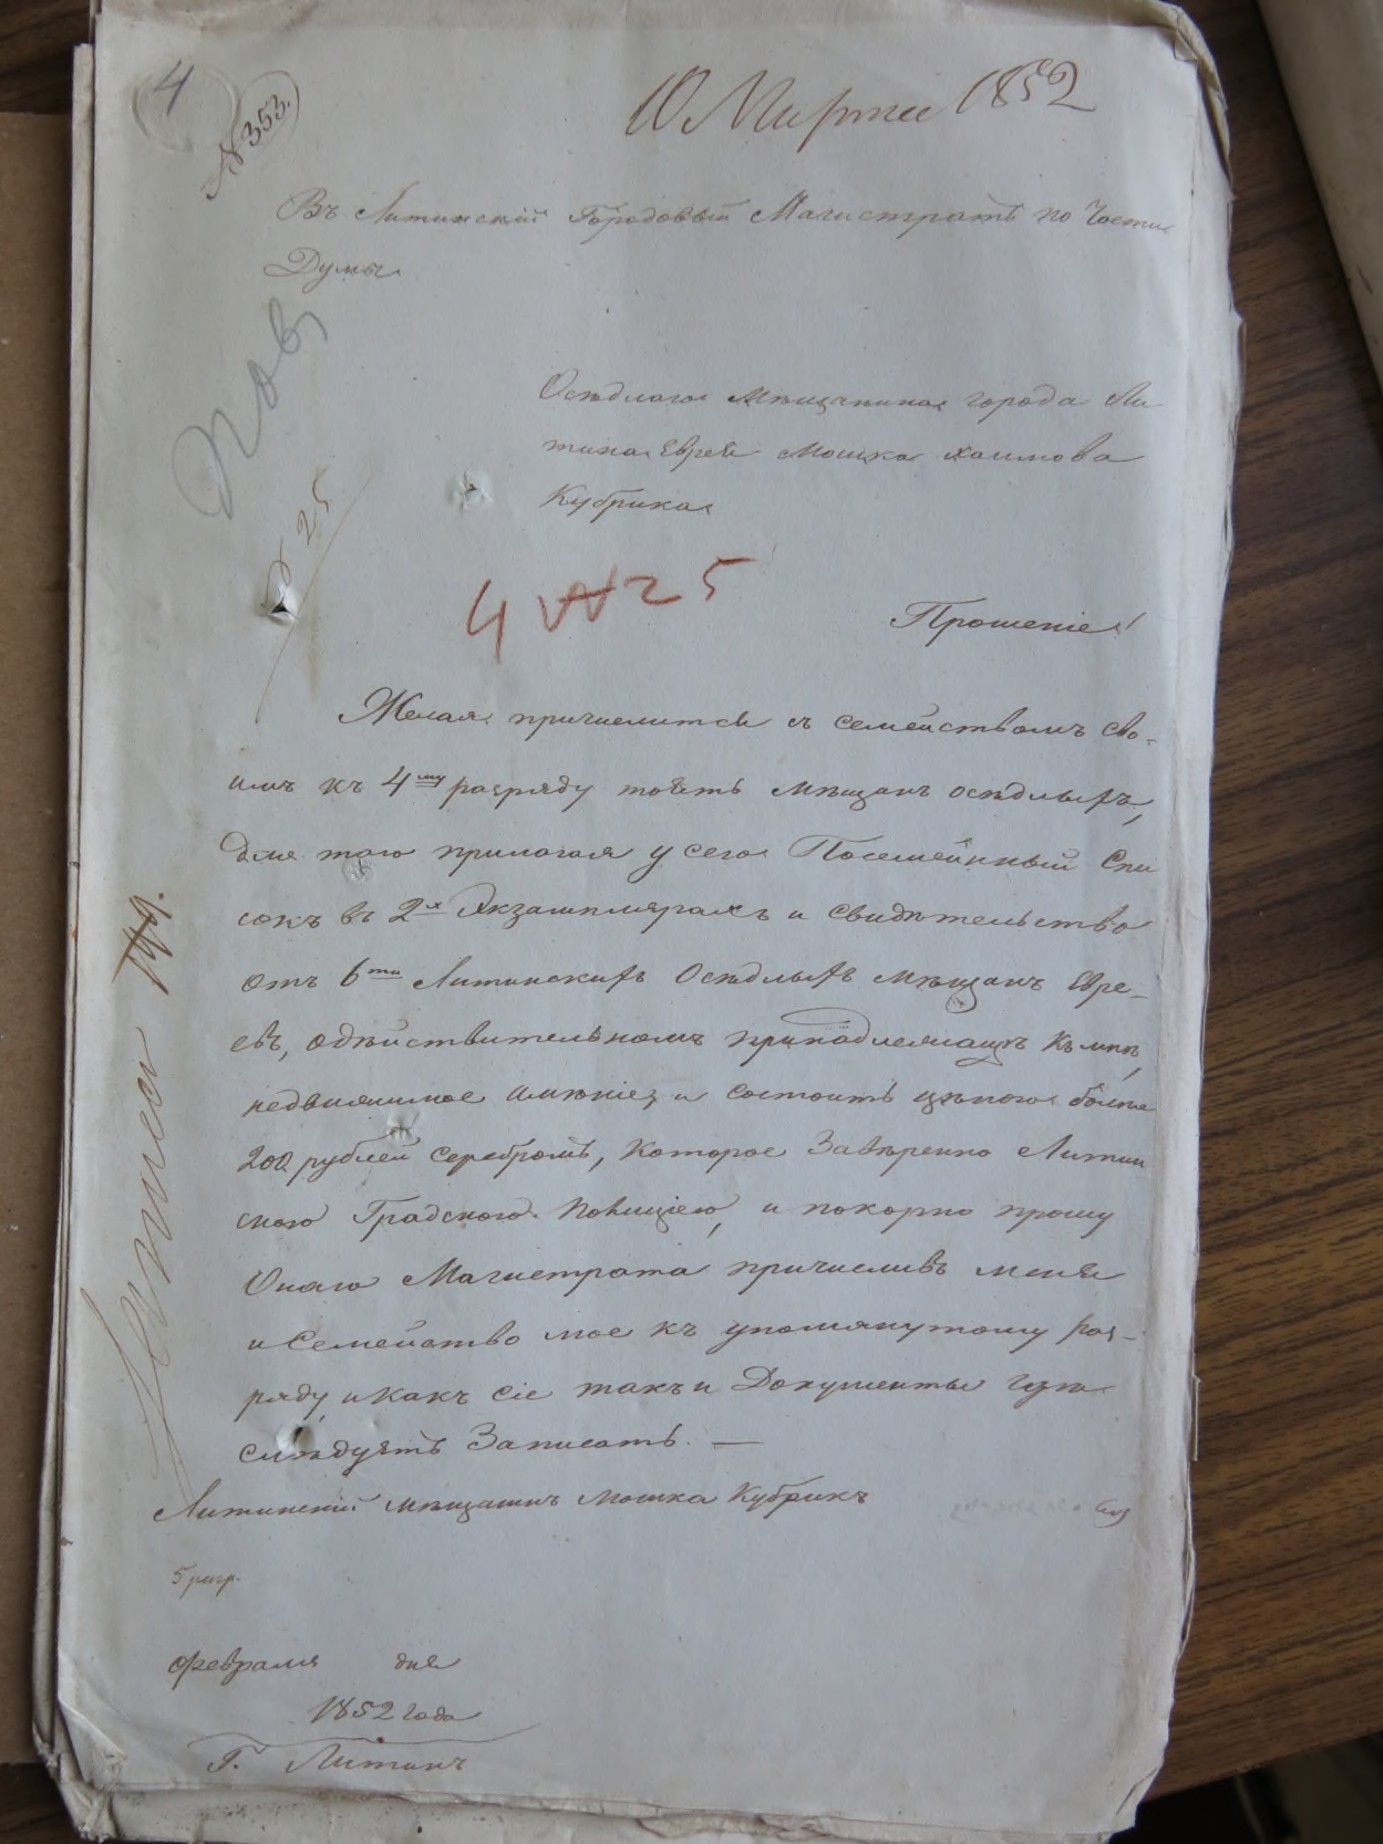 4
№ 353.
10 Марта 1852
Въ Литинскій Городовый Магистратъ по Части
Думы
Пов
Осѣдлаго Мѣщанина города Ли
тина Еврея Мошка Хаимова
Кубрика
№ 25
4 № 25
Прошеніе!
Желая причислится съ семействомъ сво-
имъ къ 4му разряду тоесть мѣщанъ осѣдлыхъ,
для того прилагая у сего Посемейнный Спи
сокъ въ 2х Экземплярахъ и свидѣтельство
отъ 6ти Литинскихъ Осѣдлыхъ мѣщанъ Евре-
евъ, одѣйствительномъ принадлежащъ къ мнѣ,
недвижимое имѣніе, и состоитъ цѣною болѣе
200 рублей серебромъ, которое Завѣренно Литин
скою Градскою Полиціею, и покорно прошу
Онаго Магистрата причисливъ меня
и Семейство мое къ упомянутому раз-
ряду, и какъ сіе такъ и Документы гдѣ
слѣдуетъ Записать. —
Литинскій мѣщанинъ Мошка Кубрикъ
5 разр.
Февраля дня
1852 года
Г. Литинъ